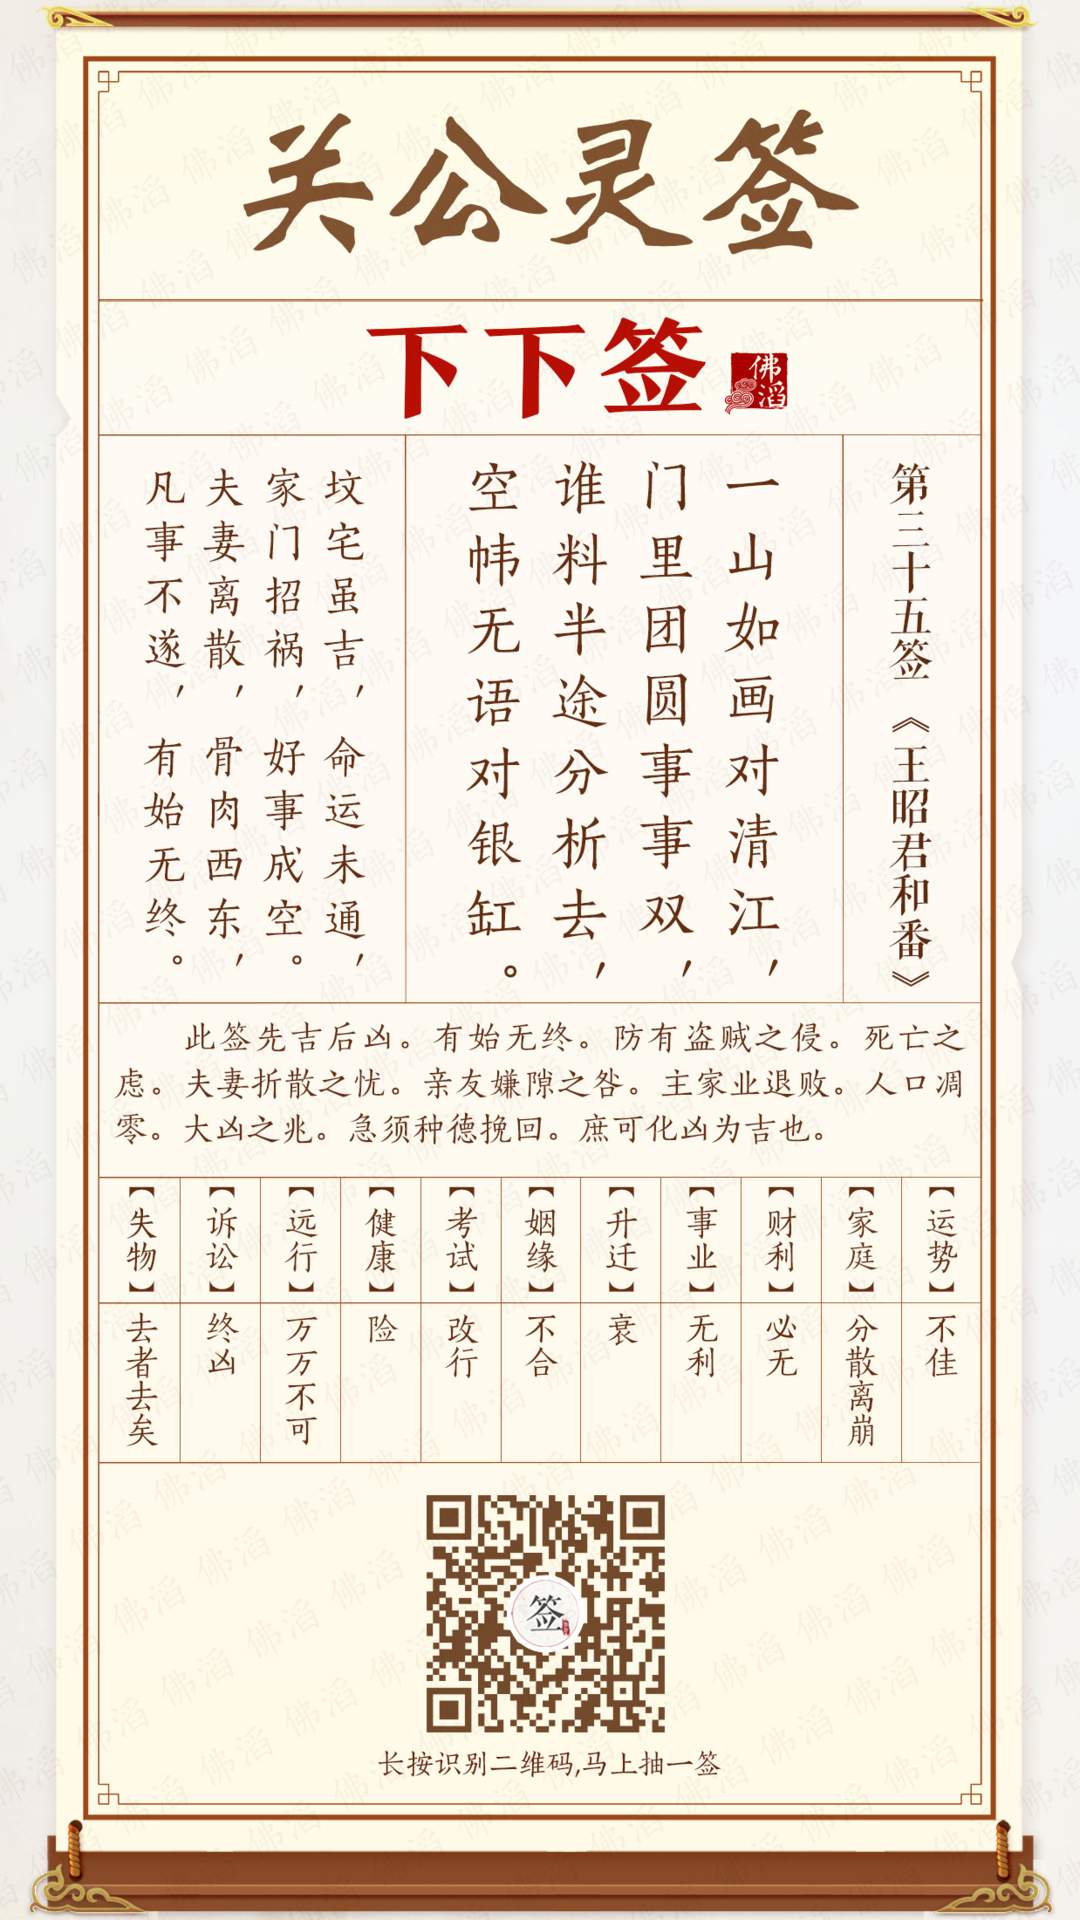 关公灵签
下下签
佛滔
第三十五签 《王昭君和番》
一山如画对清江，
门里团圆事事双，
谁料半途分析去，
空帏无语对银缸。
坟宅虽吉，命运未通，
家门招祸，好事成空。
夫妻离散，骨肉西东，
凡事不遂，有始无终。
此签先吉后凶。有始无终。防有盗贼之侵。死亡之
虑。夫妻折散之忧。亲友嫌隙之咎。主家业退败。人口凋
零。大凶之兆。急须种德挽回。庶可化凶为吉也。
【运势】
不佳
【家庭】
分散离崩
【财利】
必无
【事业】
无利
【升迁】
衰
【姻缘】
不合
【考试】
改行
【健康】
险
【远行】
万万不可
【诉讼】
终凶
【失物】
去者去矣
签
长按识别二维码,马上抽一签